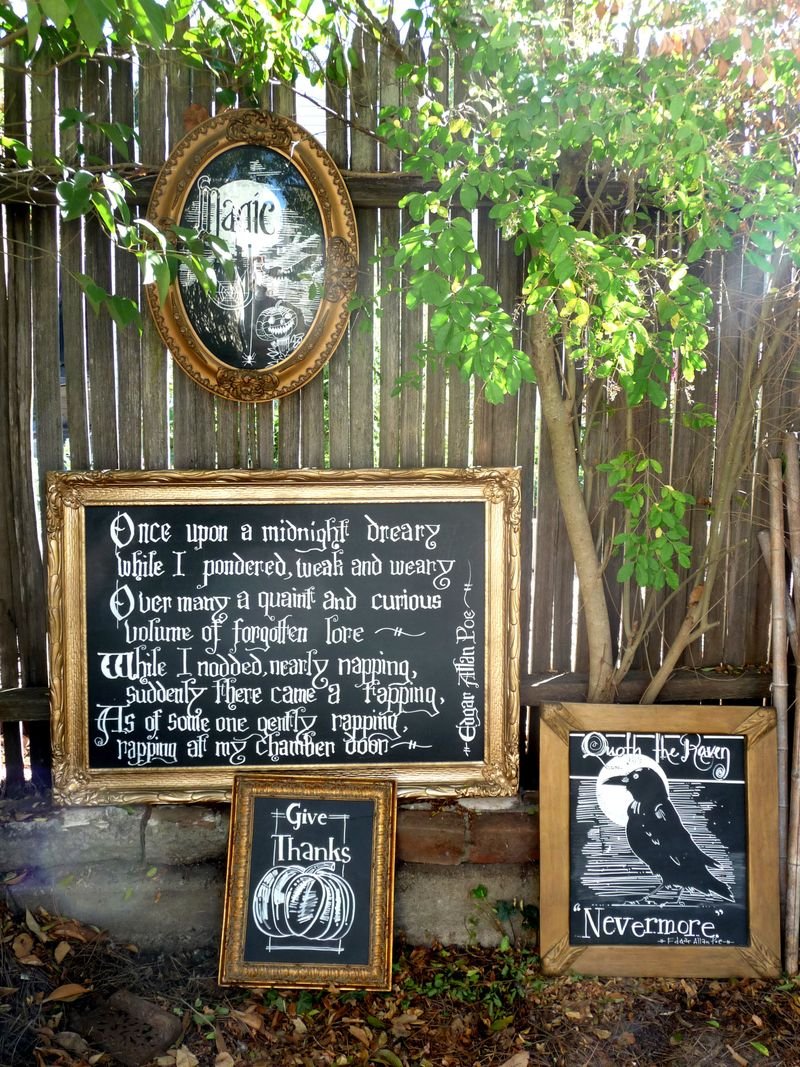 Magic
Once upon a midnight dreary
while I pondered, weak and weary
Over many a quaint and curious
volume of forgotten lore
While I nodded, nearly napping,
suddenly there came a tapping,
As of some one gently rapping,
rapping at my chamber door
Edgar Allan Poe
Give
Thanks
Quoth the Raven
"Nevermore"
Edgar Allan Poe